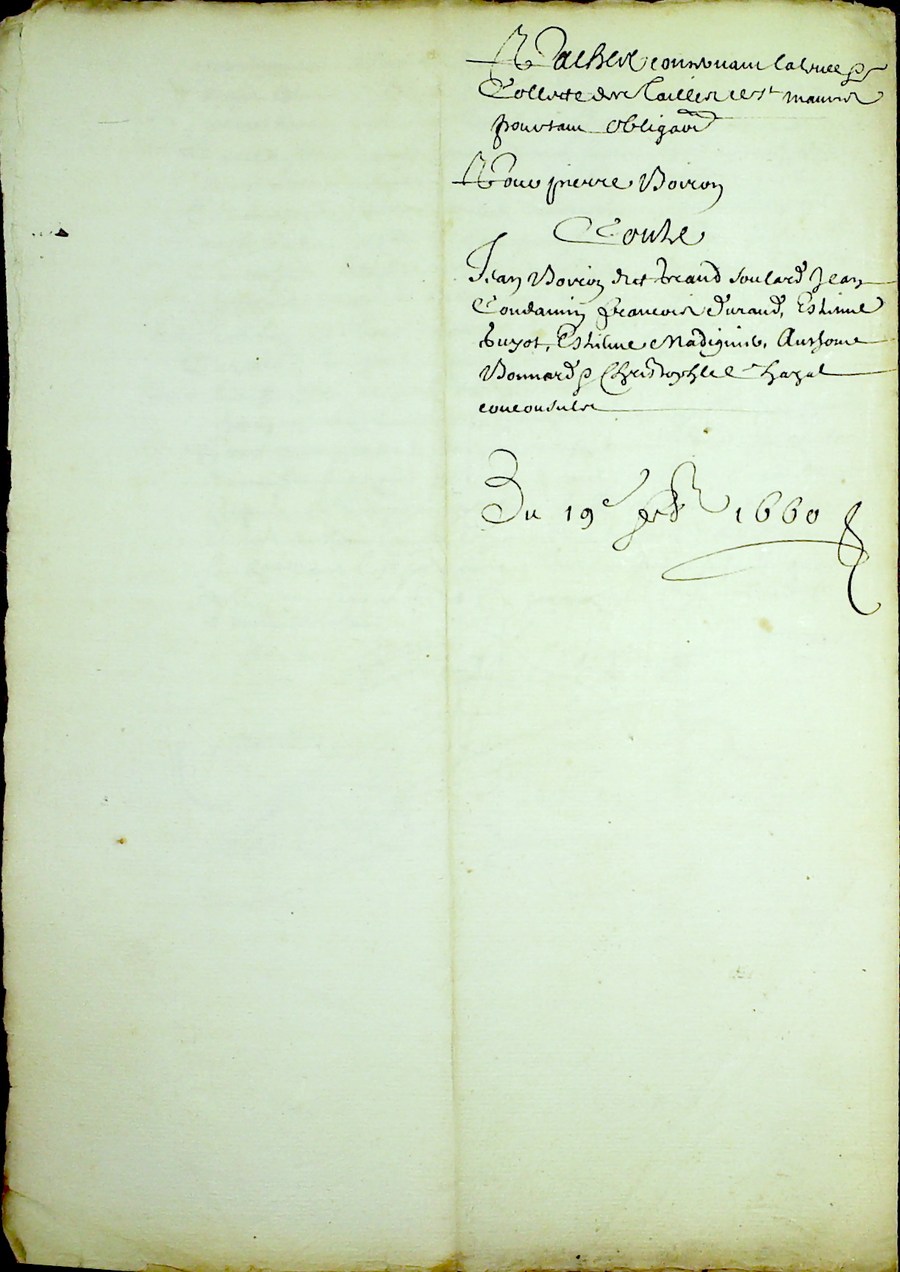 Pacher contenant la levee &
Collecte des Tailles de st maurice
portant obligaon
Pour pierre Boiron
Contre
Jean Boiron dict briand Soulard Jean
Condamin francois durand, Estienne
Guyot, Estienne Madignier, Anthoine
Bonnard & Christophle Chazal
conconsulz
Du 19e 1660